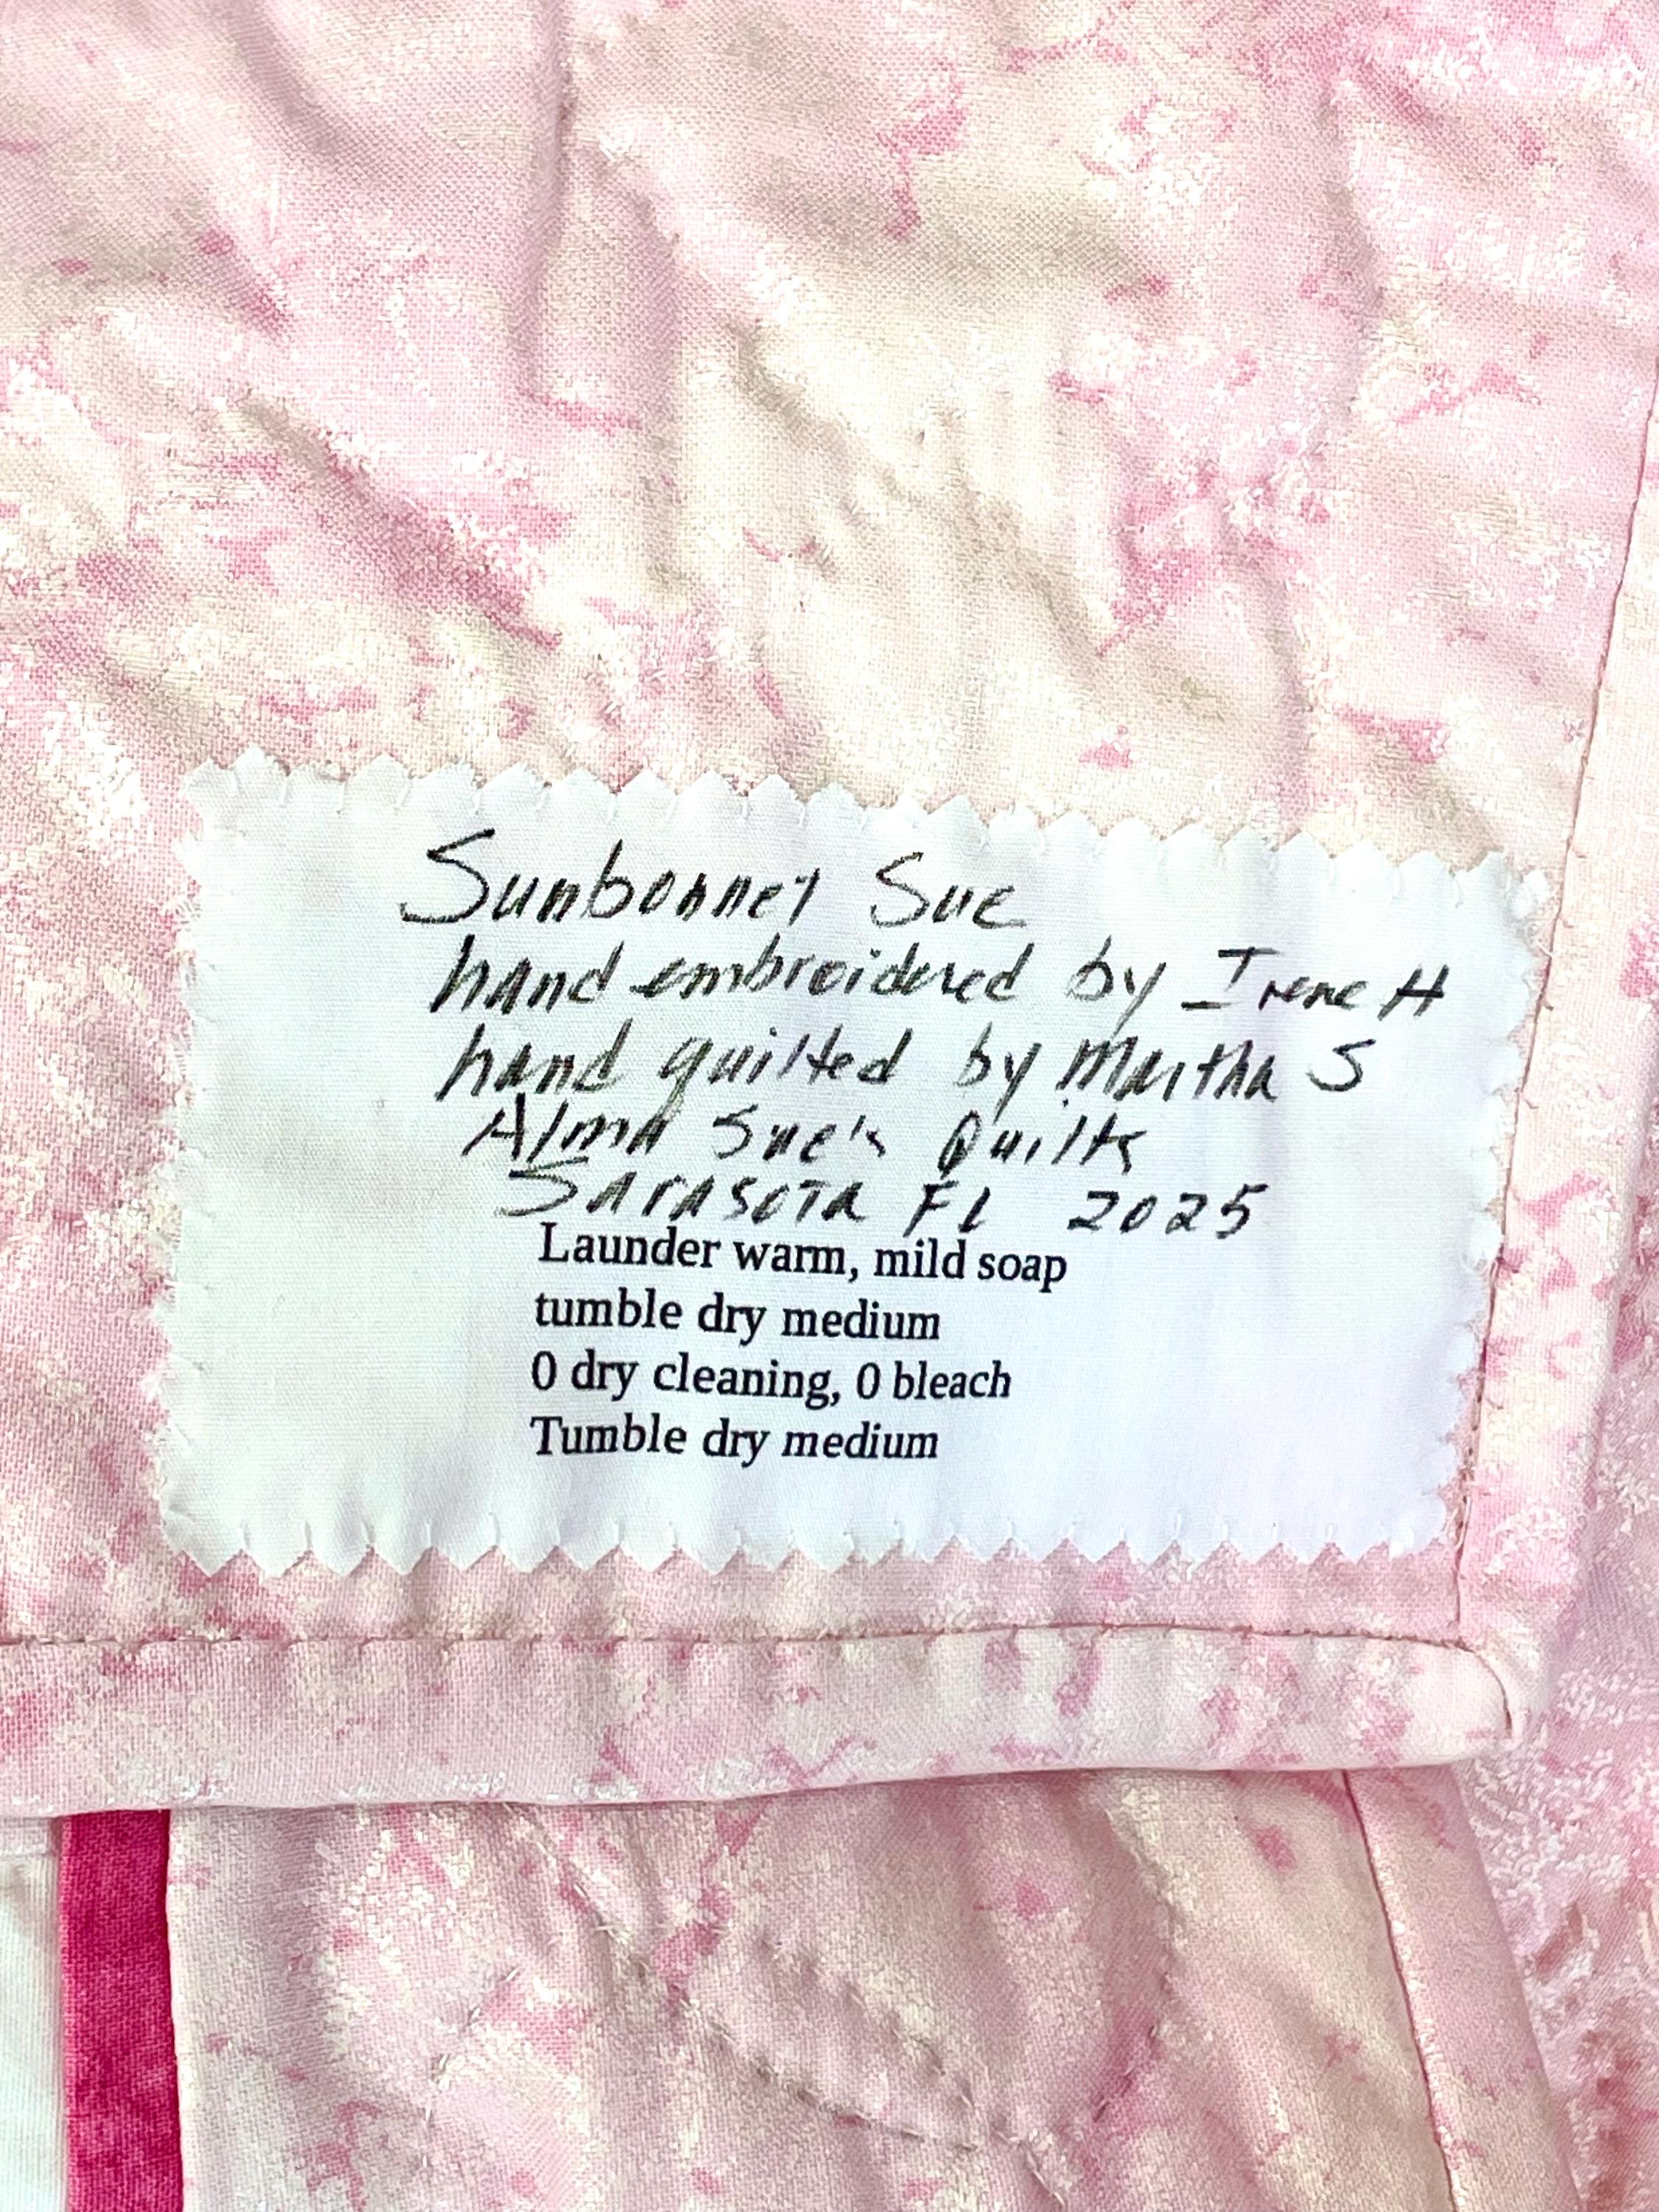 Sunbonnet Sue
hand embroidered by Irene H
hand quilted by Martha S
Alma Sue's Quilts
Sarasota FL 2025
Launder warm, mild soap
tumble dry medium
0 dry cleaning, 0 bleach
Tumble dry medium